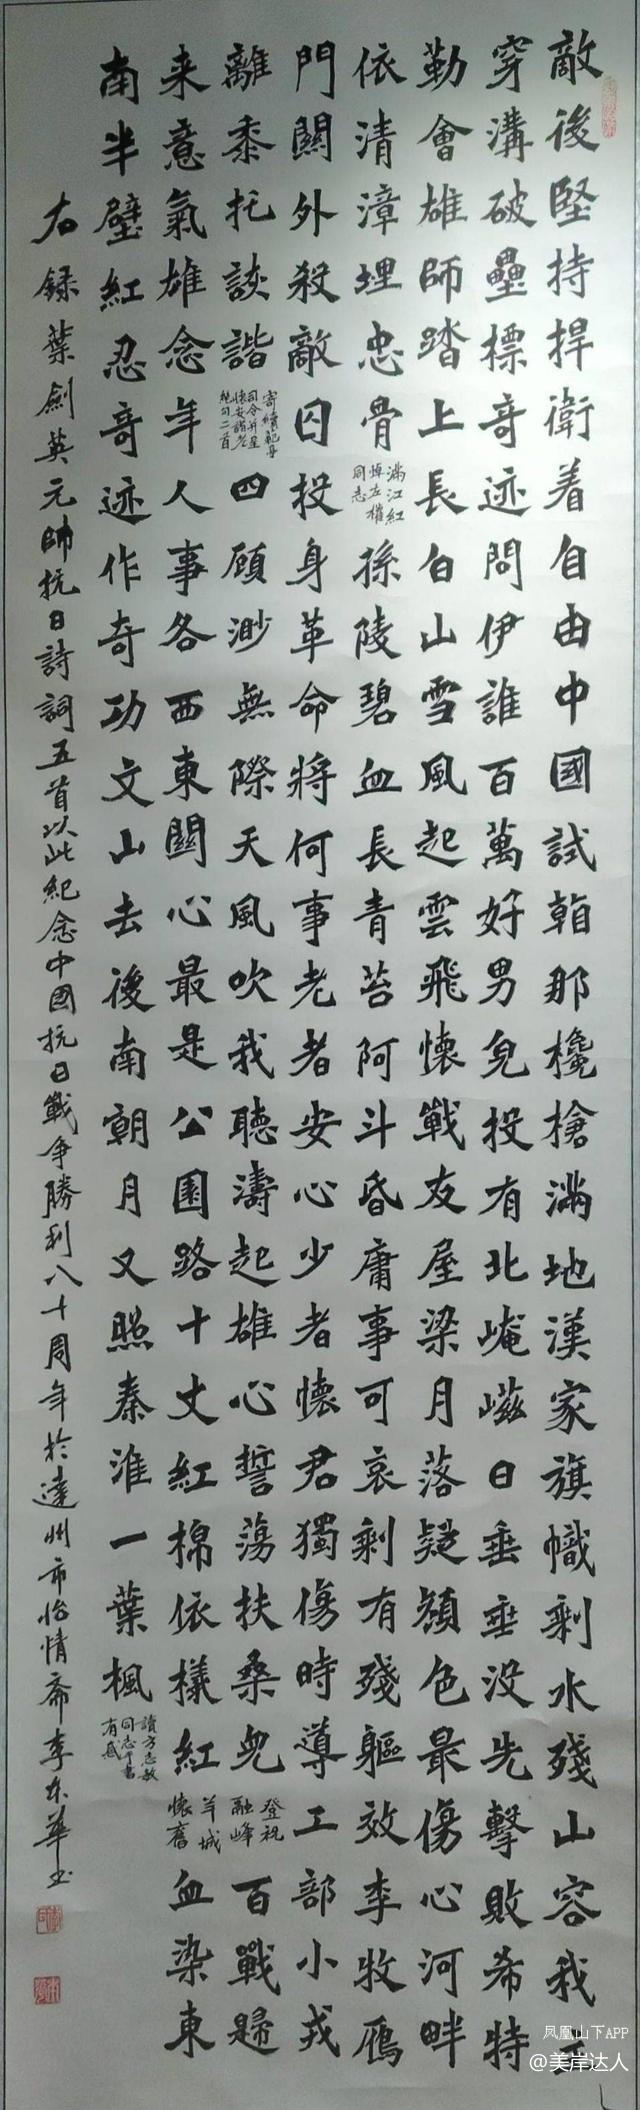 敵後堅持捍衛着自由中國試看那欃槍滿地漢家旗幟剩水殘山容我主
穿溝破壘標奇迹問伊誰百萬好男兒投有北崦嵫日垂垂没先擊敗希特
勒會雄師踏上長白山雪風起雲飛懷戰友屋梁月落疑顏色最傷心河畔
依清漳埋忠骨
滿江紅
悼左權
同志
孫陵碧血長青苔阿斗昏庸事可哀剩有殘軀效李牧雁
門關外殺敵囚投身革命將何事老者安心少者懷君獨傷時導工部小戎
離黍托詼諧
寄續範亭
司令并呈
懷安諸老
絕句二首
四顧渺無際天風吹我聽濤起雄心誓蕩扶桑兒
登祝
融峰
百戰歸
来意氣雄念年人事各西東關心最是公園路十丈紅棉依樣紅
羊城
懷舊
血染東
南半壁紅忍奇迹作奇功文山去後南朝月又照秦淮一葉楓
讀方志敏
同志手書
有感
右録葉劍英元帥抗日詩詞五首以此紀念中國抗日戰争勝利八十周年於達州市怡情齋李东華书
凤凰山下APP
@美岸达人